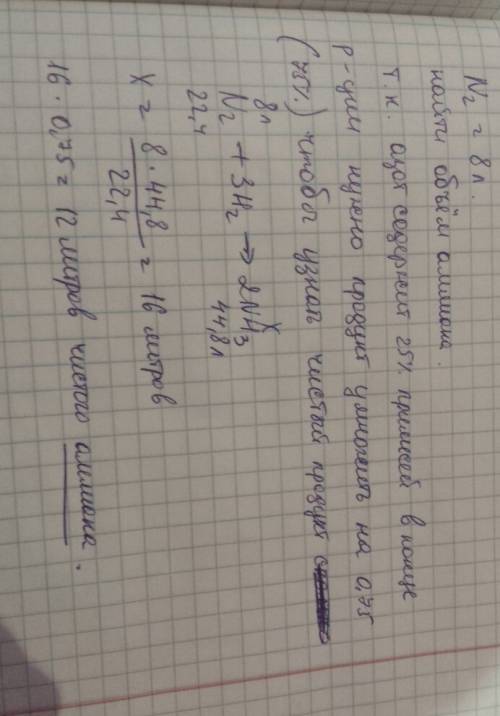 N₂ = 8 л.
найти объём аммиака.
т.к. азот содержит 25% примесей в конце
р-ции нужно продукт умножить на 0,75
(75%.) чтобы узнать чистый продукт
8л X
N₂ + 3H₂ → 2NH₃
22,4 44,8л
X = 8 · 44,8 / 22,4 = 16 литров
16 · 0,75 = 12 литров чистого аммиака.